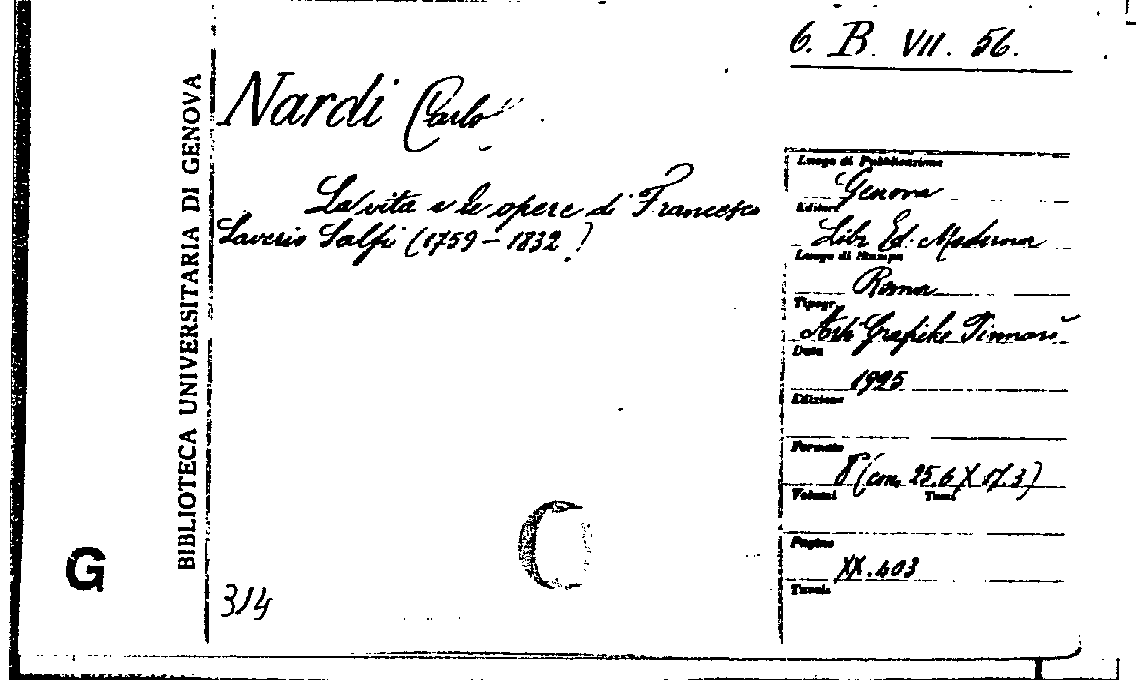 6. B. VII. 56.
BIBLIOTECA UNIVERSITARIA DI GENOVA
Nardi Carlo
La vita e le opere di Francesco
Saverio Salfi (1759 - 1832)
Luogo di Pubblicazione
Genova
Editore
Libr. Ed. Moderna
Luogo di Stampa
Roma
Tipogr.
Arti Grafiche
Data
1925
Edizione
Formato
8° (cm. 25.6 X 17.3)
Volumi Tomi
Pagine
XX. 403
Tavole
G
314